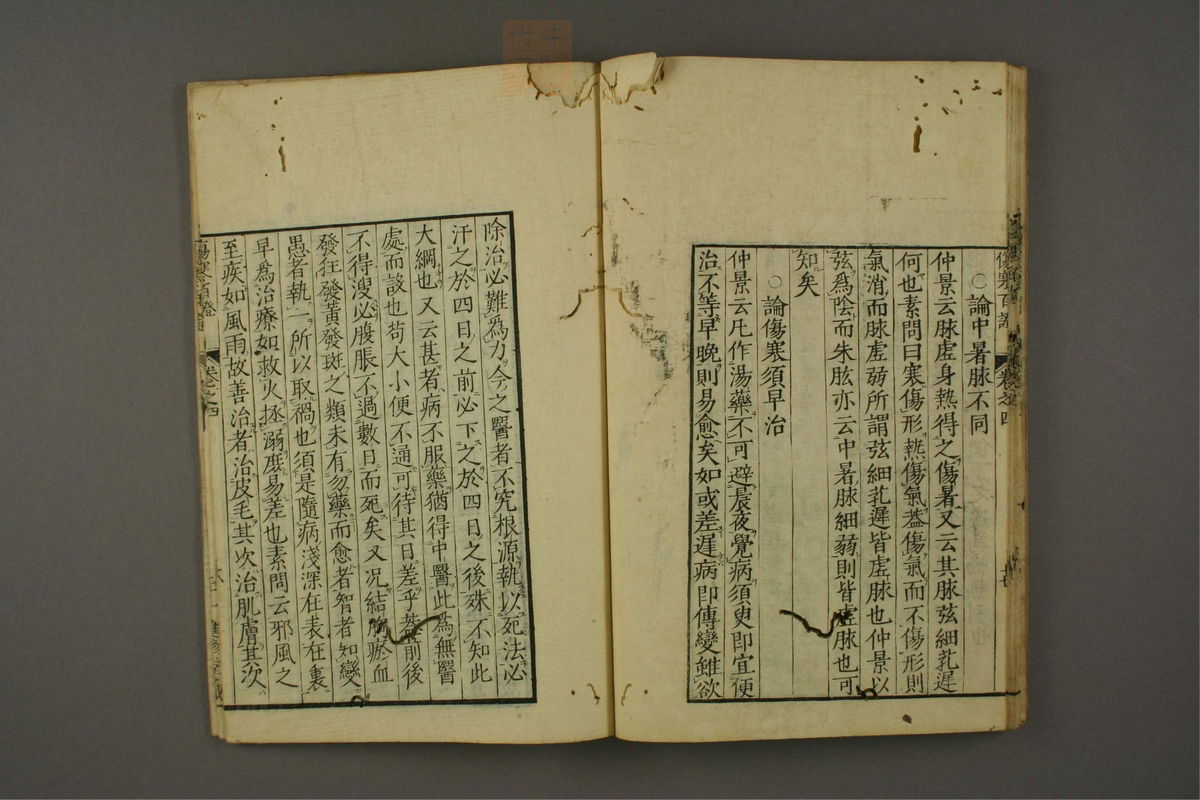 傷寒百證 卷之四
○論中暑脉不同
仲景云脉虛身熱得之傷暑又云其脉弦細芤遲
何也素問曰寒傷形熱傷氣蓋傷氣而不傷形則
氣消而脉虛弱所謂弦細芤遲皆虛脉也仲景以
弦爲陰而朱肱亦云中暑脉細弱則皆虛脉也可
知矣
○論傷寒須早治
仲景云凡作湯藥不可避晨夜覺病須臾即宜便
治不等早晚則易愈矣如或差遲病即傳變雖欲
除治必難爲力今之醫者不究根源執以死法必
汗之於四日之前必下之於四日之後殊不知此
大綱也又云甚者病不服藥猶得中醫此爲無醫
處而談也苟大小便不通可待其日差乎蓋前後
不得溲必腹脹不過數日而死矣又况結胸瘀血
發狂發黃發斑之類未有勿藥而愈者智者知變
愚者執一所以取禍也須是隨病淺深在表在裏
早爲治療如救火拯溺庶易差也素問云邪風之
至疾如風雨故善治者治皮毛其次治肌膚其次
傷寒百證 卷之四